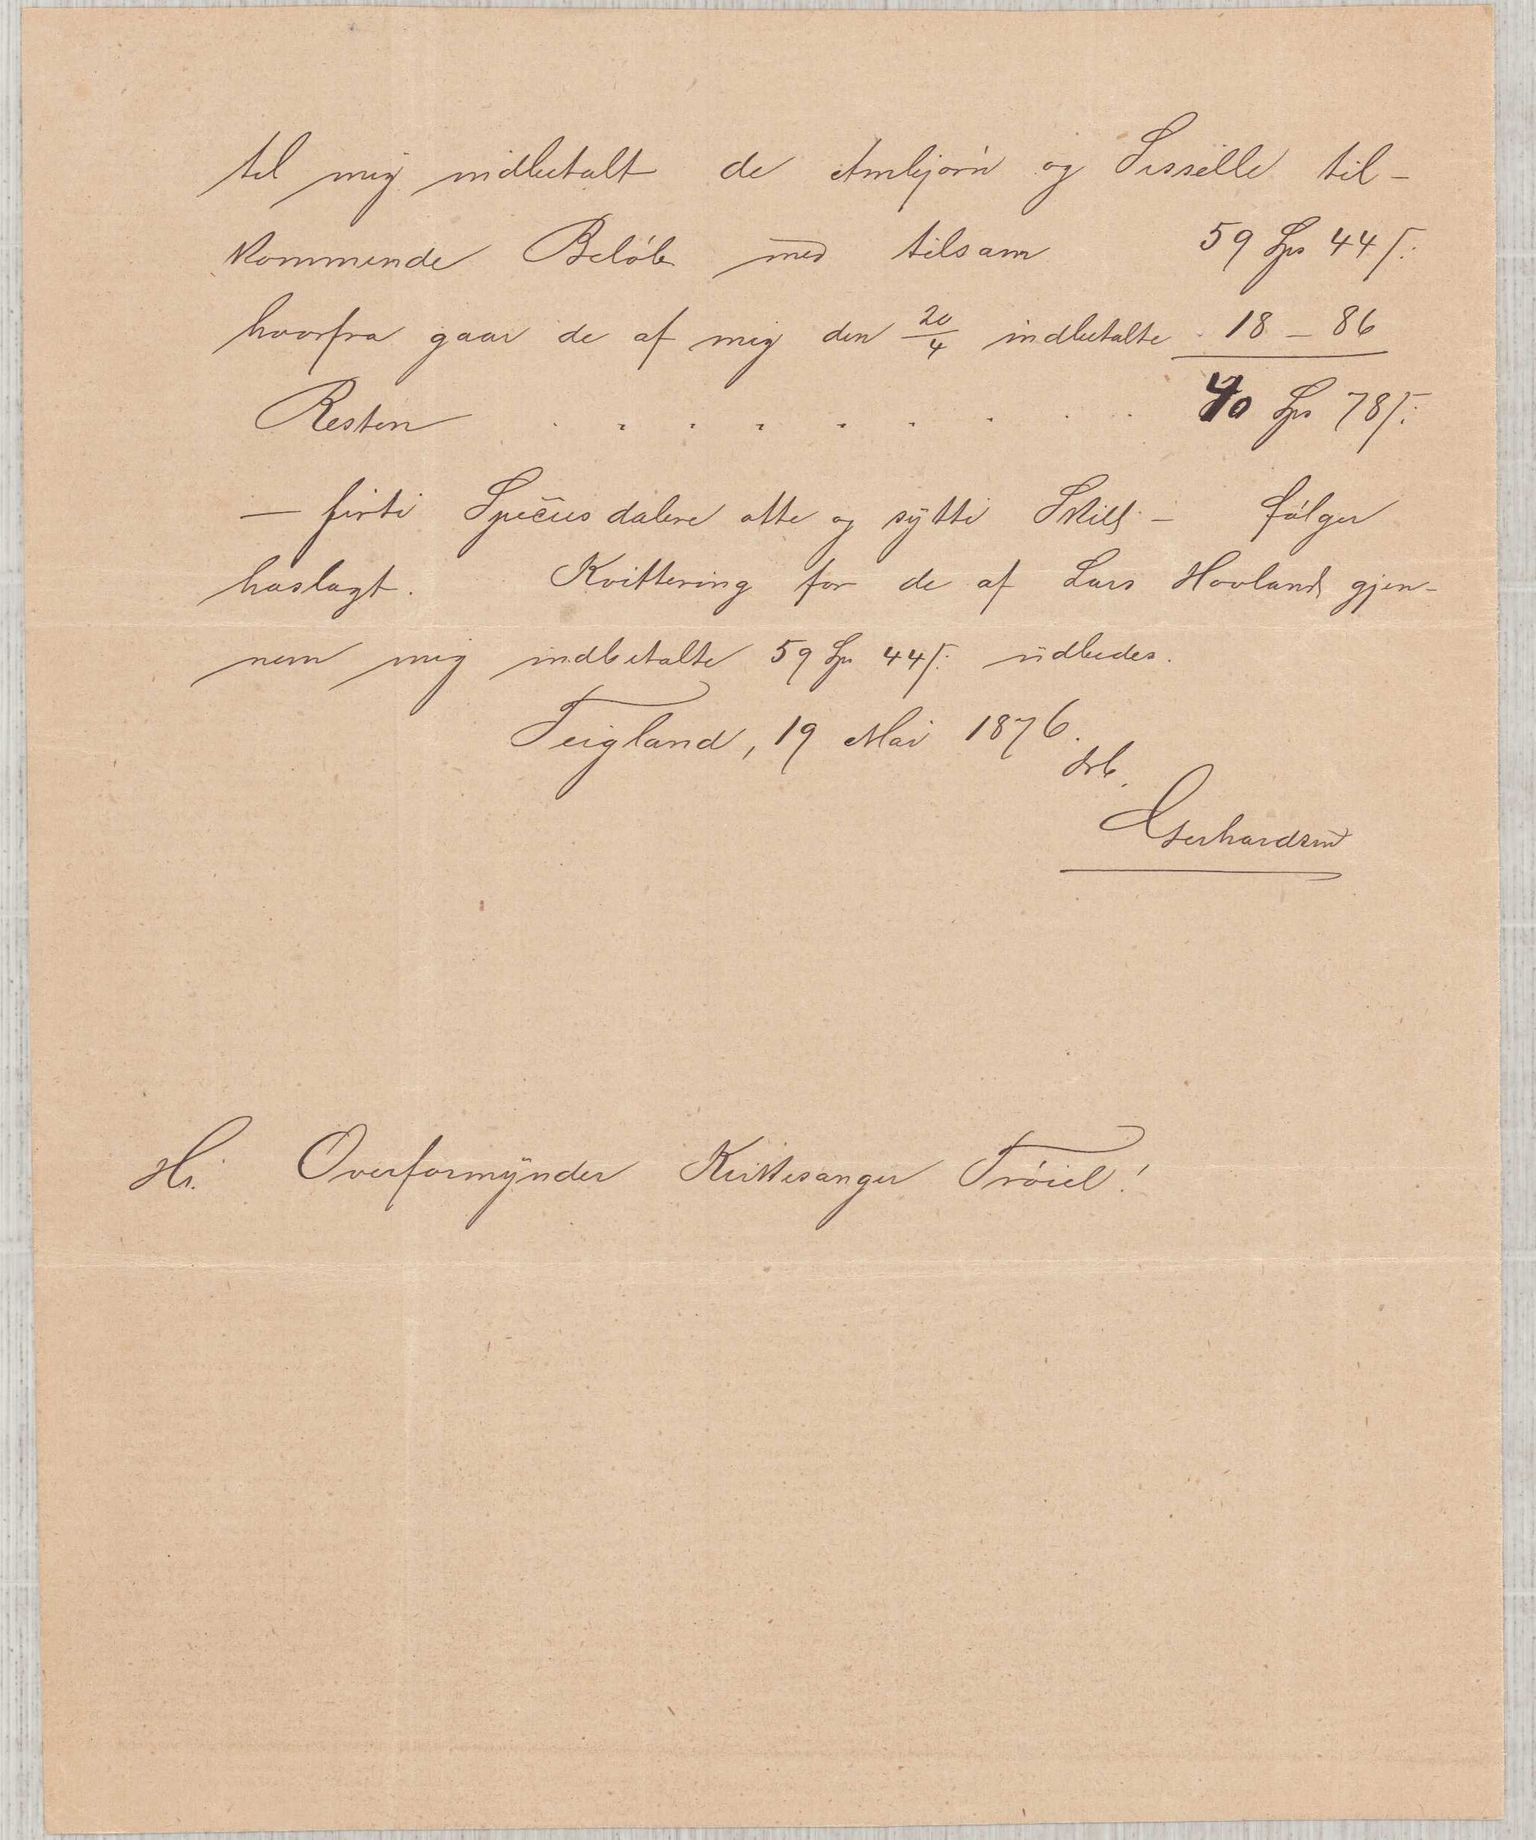 til mig indbetalt de Arnbjørn og Sisselle til-
kommende Beløb med tilsam 59 Sps 44 s:
hvorfra gaar de af mig den 20/4 indbetalte 18 – 86
Resten . . . . . . . . . 40 Sps 78 s:
— firti Speciesdalere otte og sytti Skill – følger
hoslagt. Kvittering for de af Lars Hovland gjen-
nem mig indbetalte 59 Sps 44 s: udbedes.
Teigland, 19 Mai 1876.
Ærb.
Gerhardsen
Hr. Overformynder Kirkesanger Trøiel!